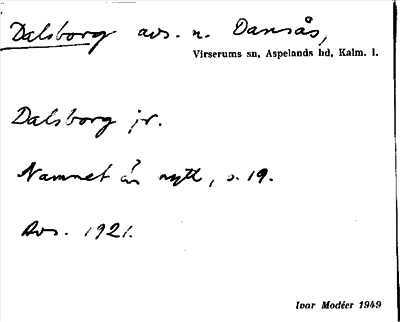 Dalsborg avs. n. Dansås,
Virserums sn, Aspelands hd, Kalm. l.
Dalsborg jr.
Namnet är nytt, s. 19.
Avs. 1921.
Ivar Modéer 1949